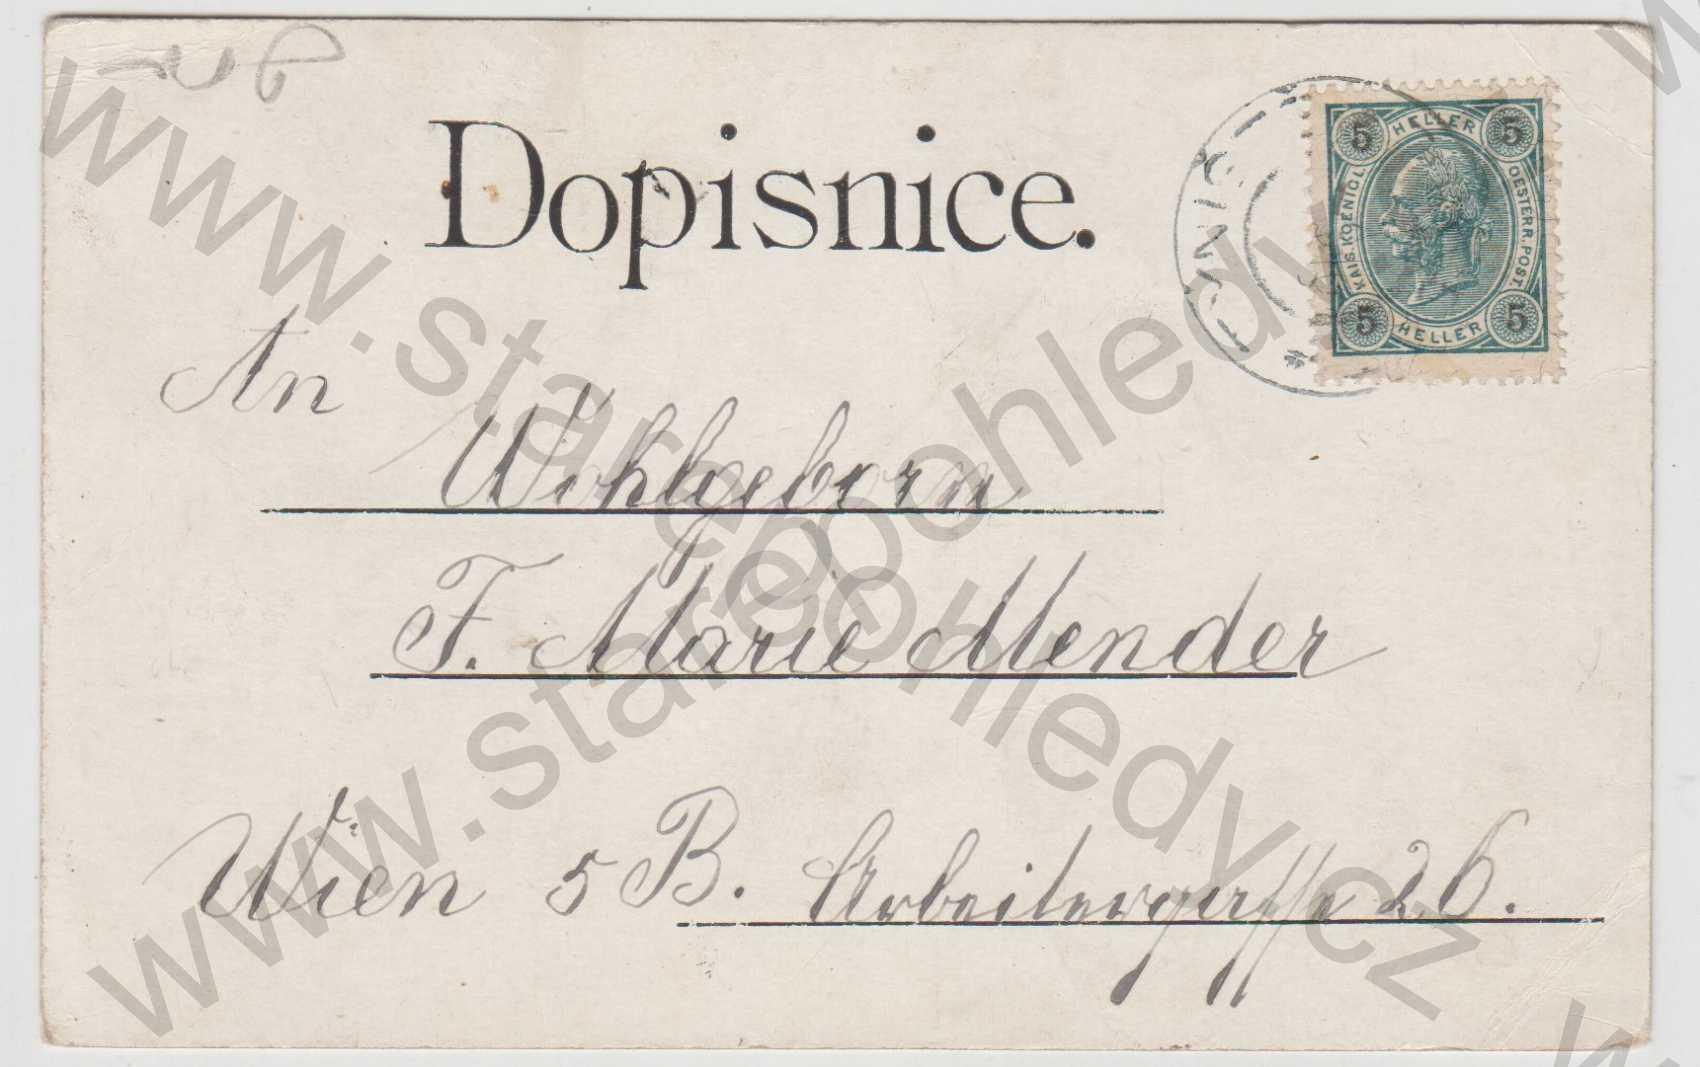 Dopisnice.
5 HELLER 5
KAIS. KOENIGL.
OESTERR. POST.
5 HELLER 5
An
Wohlgeborn
F. Marie Mender
Wien 5 B. Arbeitergasse 26.
www.starepohledy.cz
www.starepohledy.cz